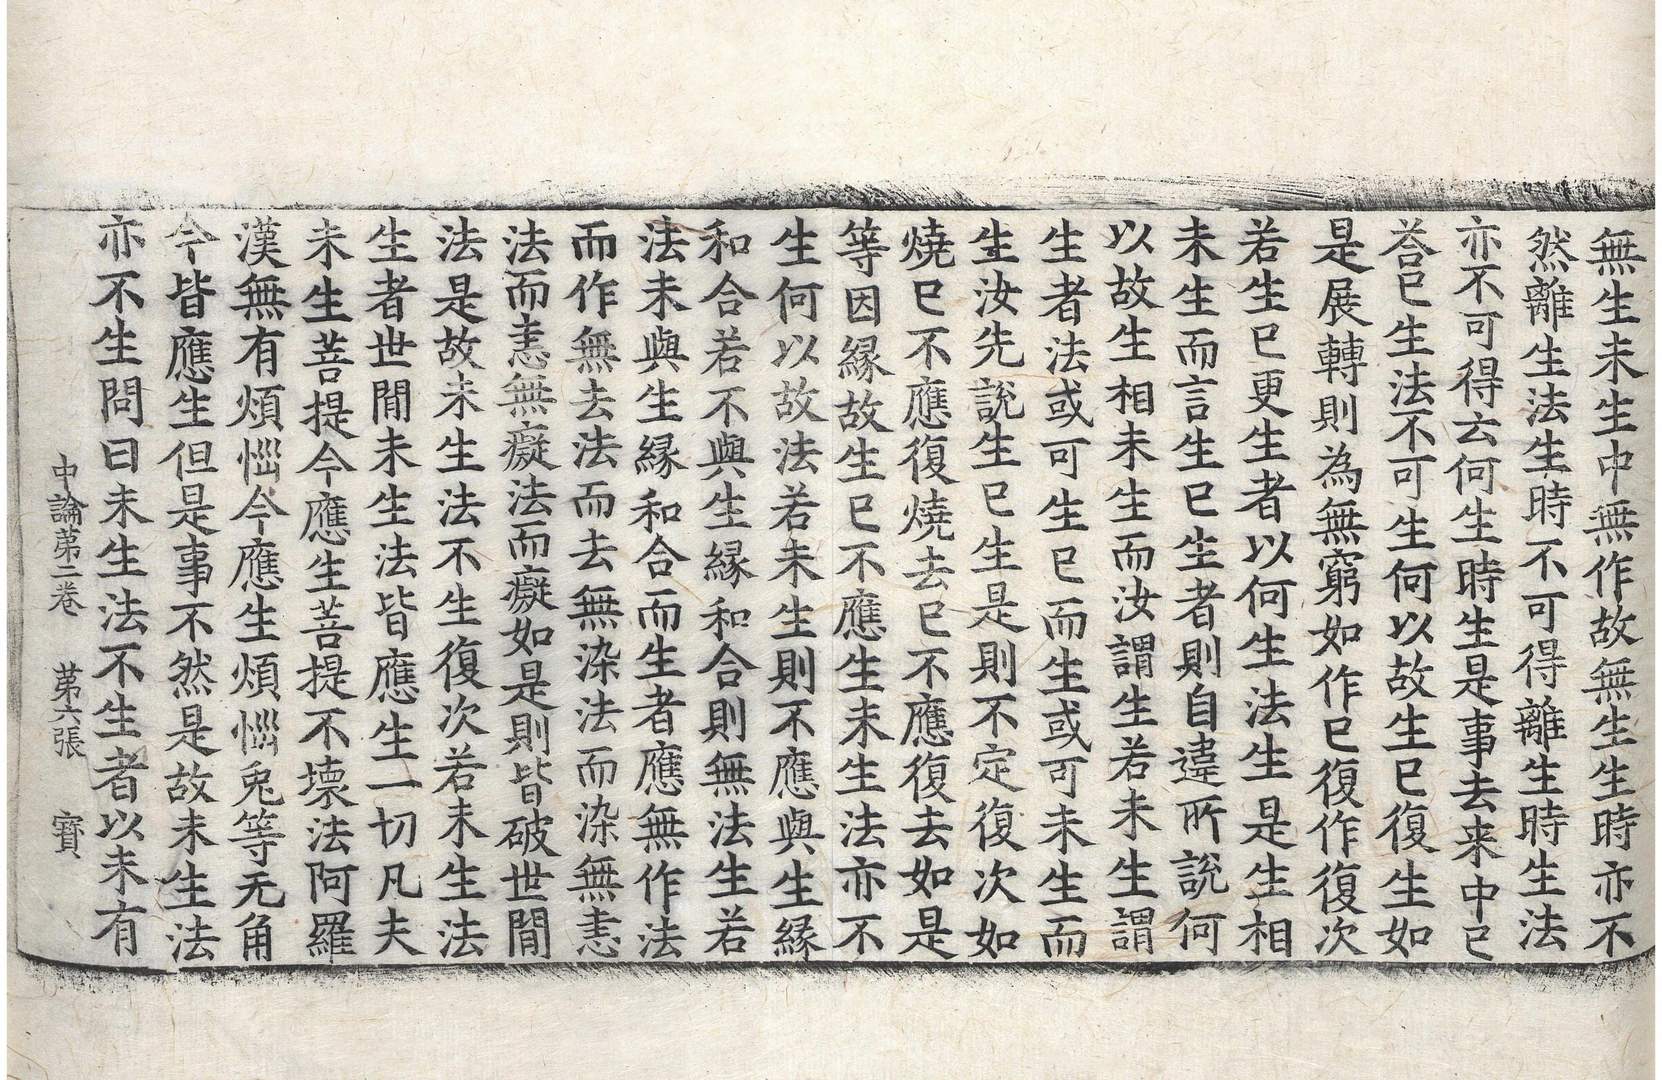 無生未生中無作故無生生時亦不
然離生法生時不可得離生時生法
亦不可得云何生時生是事去来中已
荅已生法不可生何以故生已復生如
是展轉則為無窮如作已復作復次
若生已更生者以何生法生是生相
未生而言生已生者則自違所說何
以故生相未生而汝謂生若未生謂
生者法或可生已而生或可未生而
生汝先說生已生是則不定復次如
燒已不應復燒去已不應復去如是
等因緣故生已不應生未生法亦不
生何以故法若未生則不應與生緣
和合若不與生緣和合則無法生若
法未與生緣和合而生者應無作法
而作無去法而去無染法而染無恚
法而恚無癡法而癡如是則皆破世間
法是故未生法不生復次若未生法
生者世間未生法皆應生一切凡夫
未生菩提今應生菩提不壞法阿羅
漢無有煩惱今應生煩惱兎等无角
今皆應生但是事不然是故未生法
亦不生問曰未生法不生者以未有
中論苐二卷　苐六張　寳